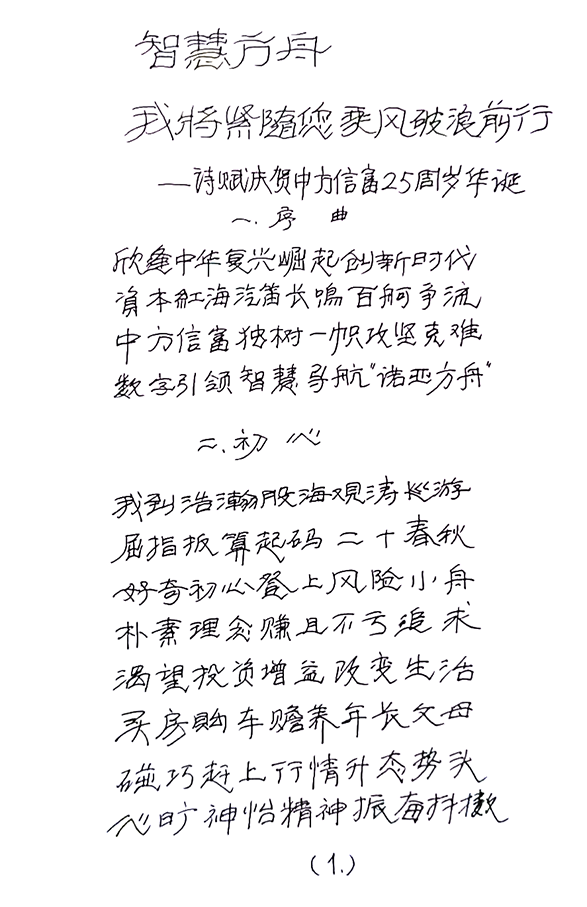 智慧方舟
我将紧随您乘风破浪前行
——诗赋庆贺中方信富25周岁华诞
一、序 曲
欣逢中华复兴崛起创新时代
资本红海汽笛长鸣百舸争流
中方信富独树一帜攻坚克难
数字引领智慧导航"诺亚方舟"
二、初 心
我到浩瀚股海观涛巡游
屈指扳算起码二十春秋
好奇初心登上风险小舟
朴素理念赚且不亏追求
渴望投资增益改变生活
买房購车赡养年长父母
碰巧赶上行情升态势头
心旷神怡精神振奋抖擞
(1.)